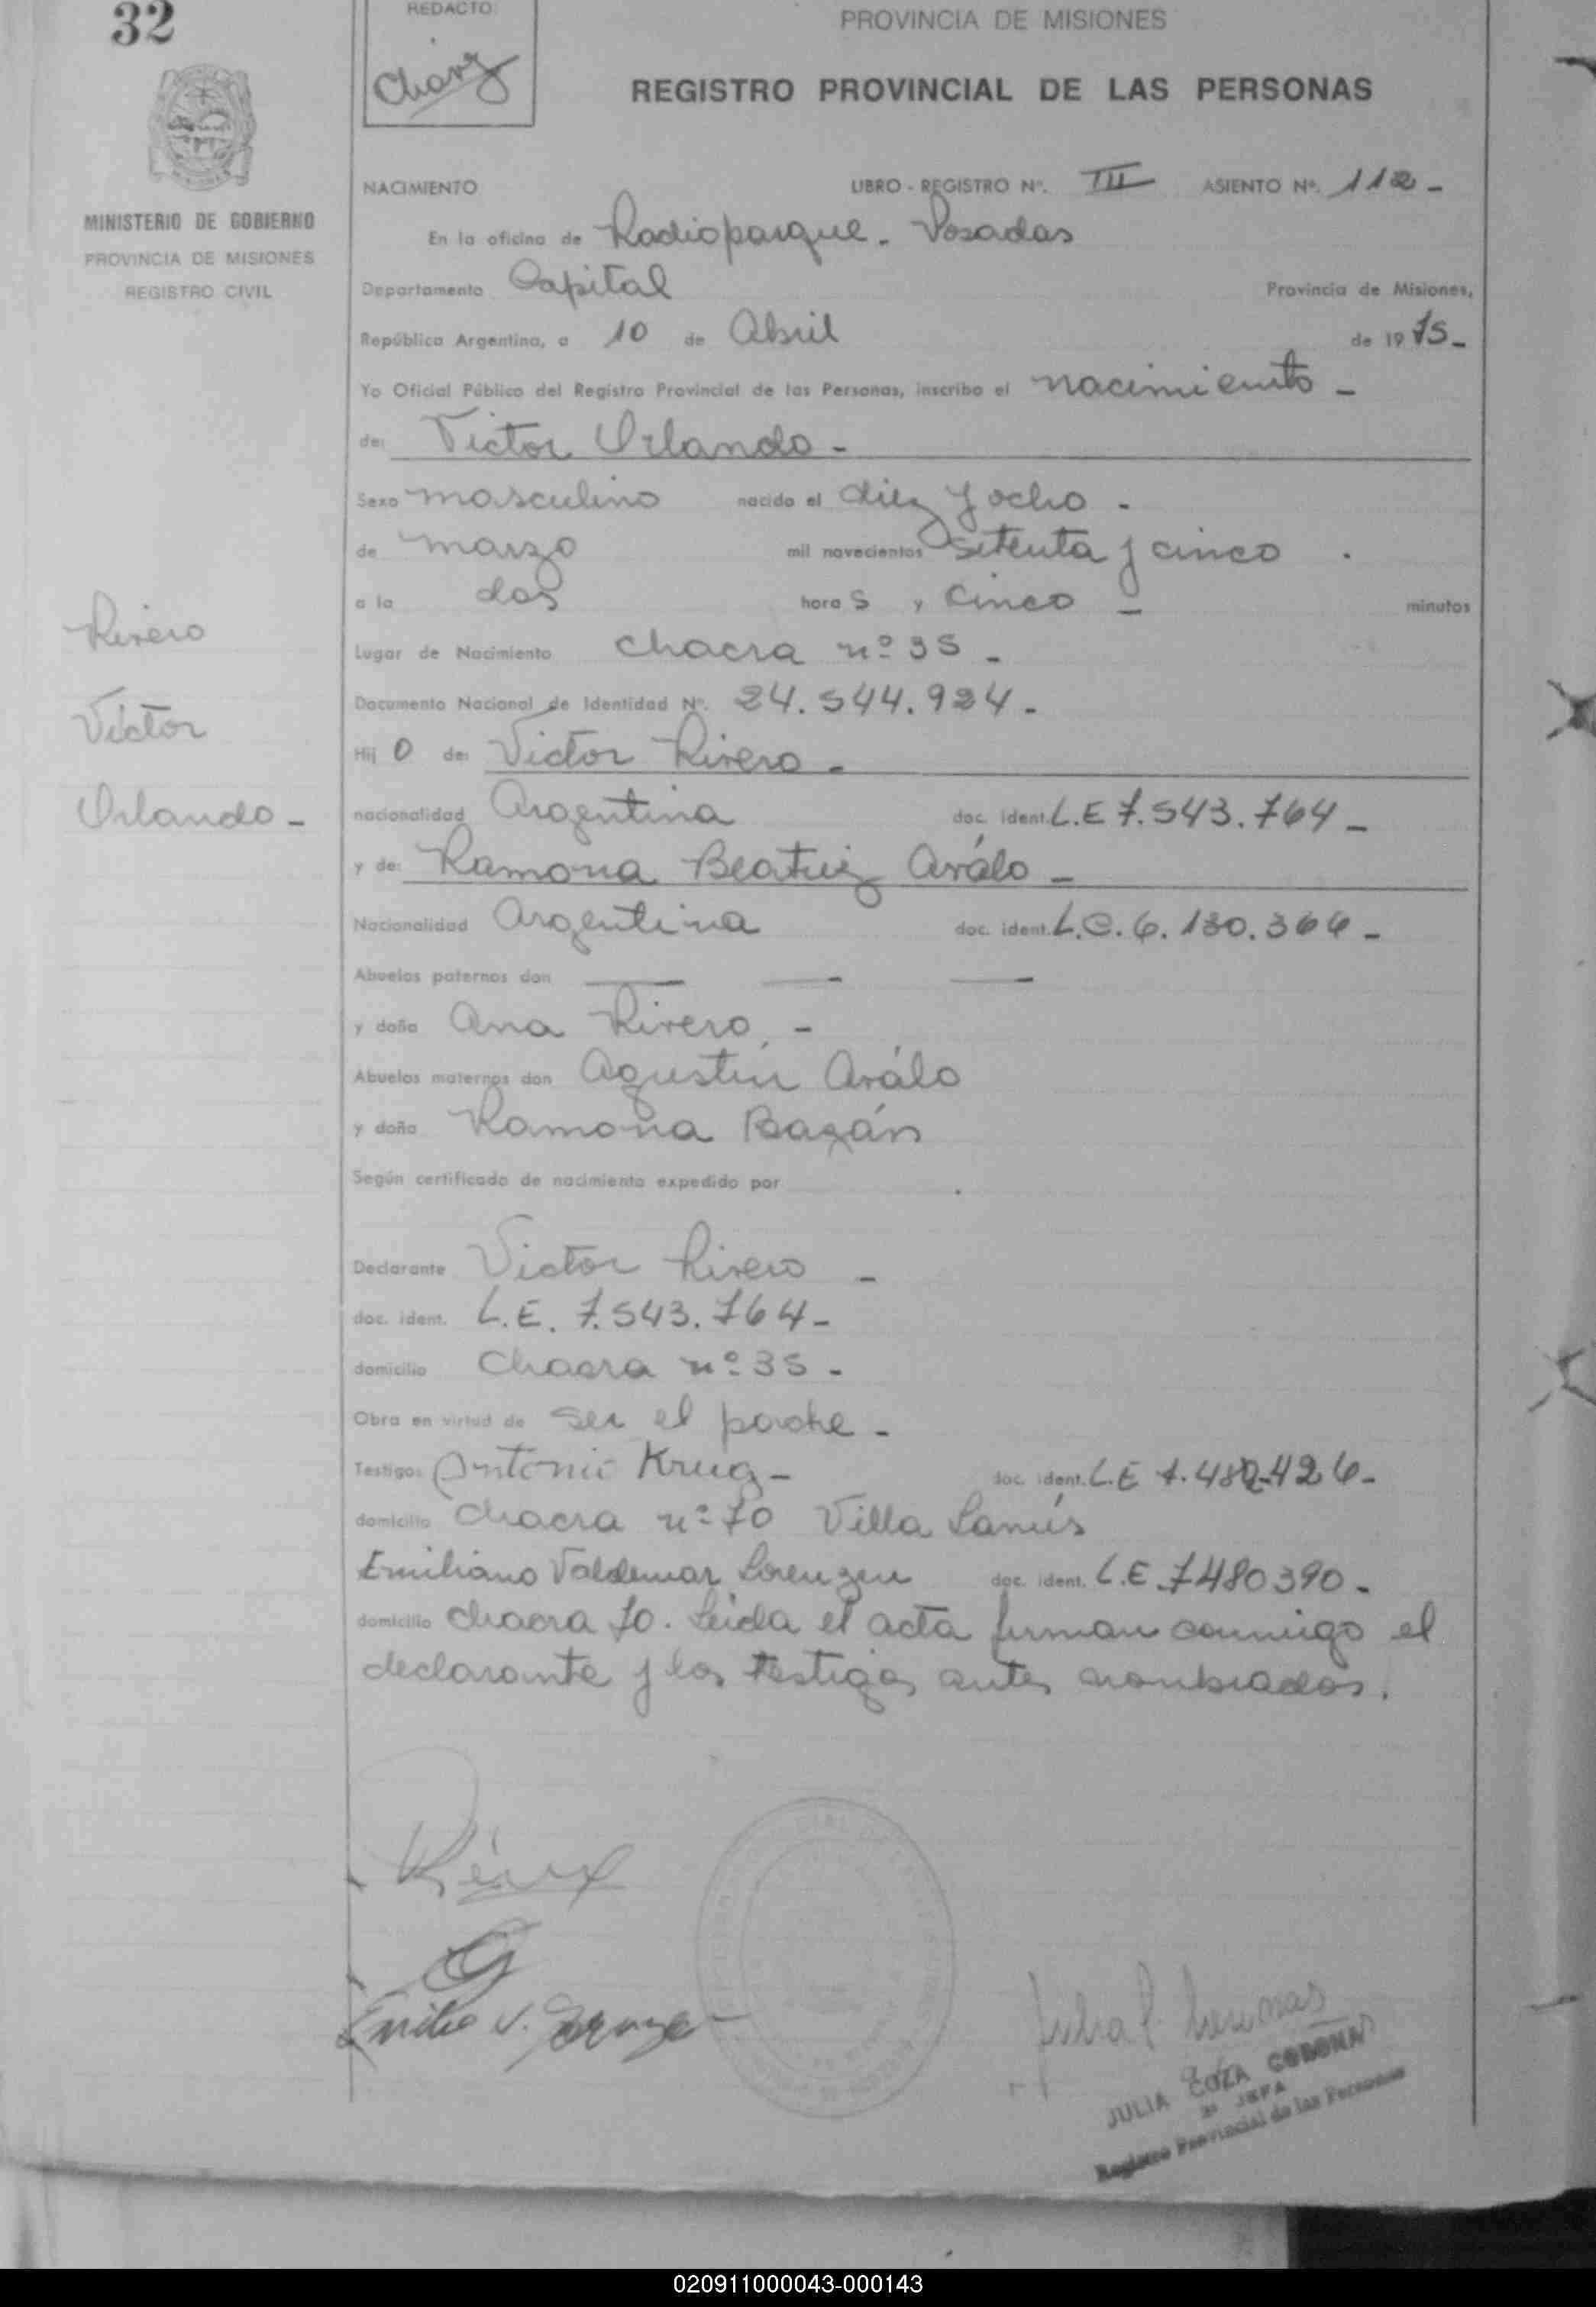 32
REDACTO
PROVINCIA DE MISIONES
REGISTRO PROVINCIAL DE LAS PERSONAS
MINISTERIO DE GOBIERNO
PROVINCIA DE MISIONES
REGISTRO CIVIL
NACIMIENTO LIBRO - REGISTRO Nº. III ASIENTO Nº. 112 -
En la oficina de Radioparque. Posadas
Departamento Capital Provincia de Misiones,
República Argentina, a 10 de Abril de 1975 -
Yo Oficial Público del Registro Provincial de las Personas, inscribo el nacimiento -
de: Victor Orlando -
Sexo masculino nacido el diez y ocho -
de marzo mil novecientos setenta y cinco .
a la dos hora s y cinco - minutos
Rivero
Lugar de Nacimiento chacra nº 35 -
Documento Nacional de Identidad Nº. 24.544.924 -
Victor
Hij o de: Victor Rivero -
Orlando -
nacionalidad Argentina doc. ident. L.E 7.543.764 -
y de: Ramona Beatriz Aválo -
Nacionalidad Argentina doc. ident. L.C. 6.130.366 -
Abuelos paternos don — — —
y doña Ana Rivero, -
Abuelos maternos don Agustín Aválo
y doña Ramona Bazán
Según certificado de nacimiento expedido por
Declarante Victor Rivero -
doc. ident. L.E. 7.543.764 -
domicilio Chacra nº 35 -
Obra en virtud de ser el padre -
Testigos Antonio Krug - doc. ident. L.E
domicilio Chacra nº 70 Villa Lanús
Emiliano Valdemar Lorenzen doc. ident. L.E. 7480390 -
domicilio chacra 70. Leida el acta firman conmigo el
declarante y los testigos antes nombrados.
JULIA COZA CORONA
2º JEFA
Registro Provincial de las Personas
020911000043-000143